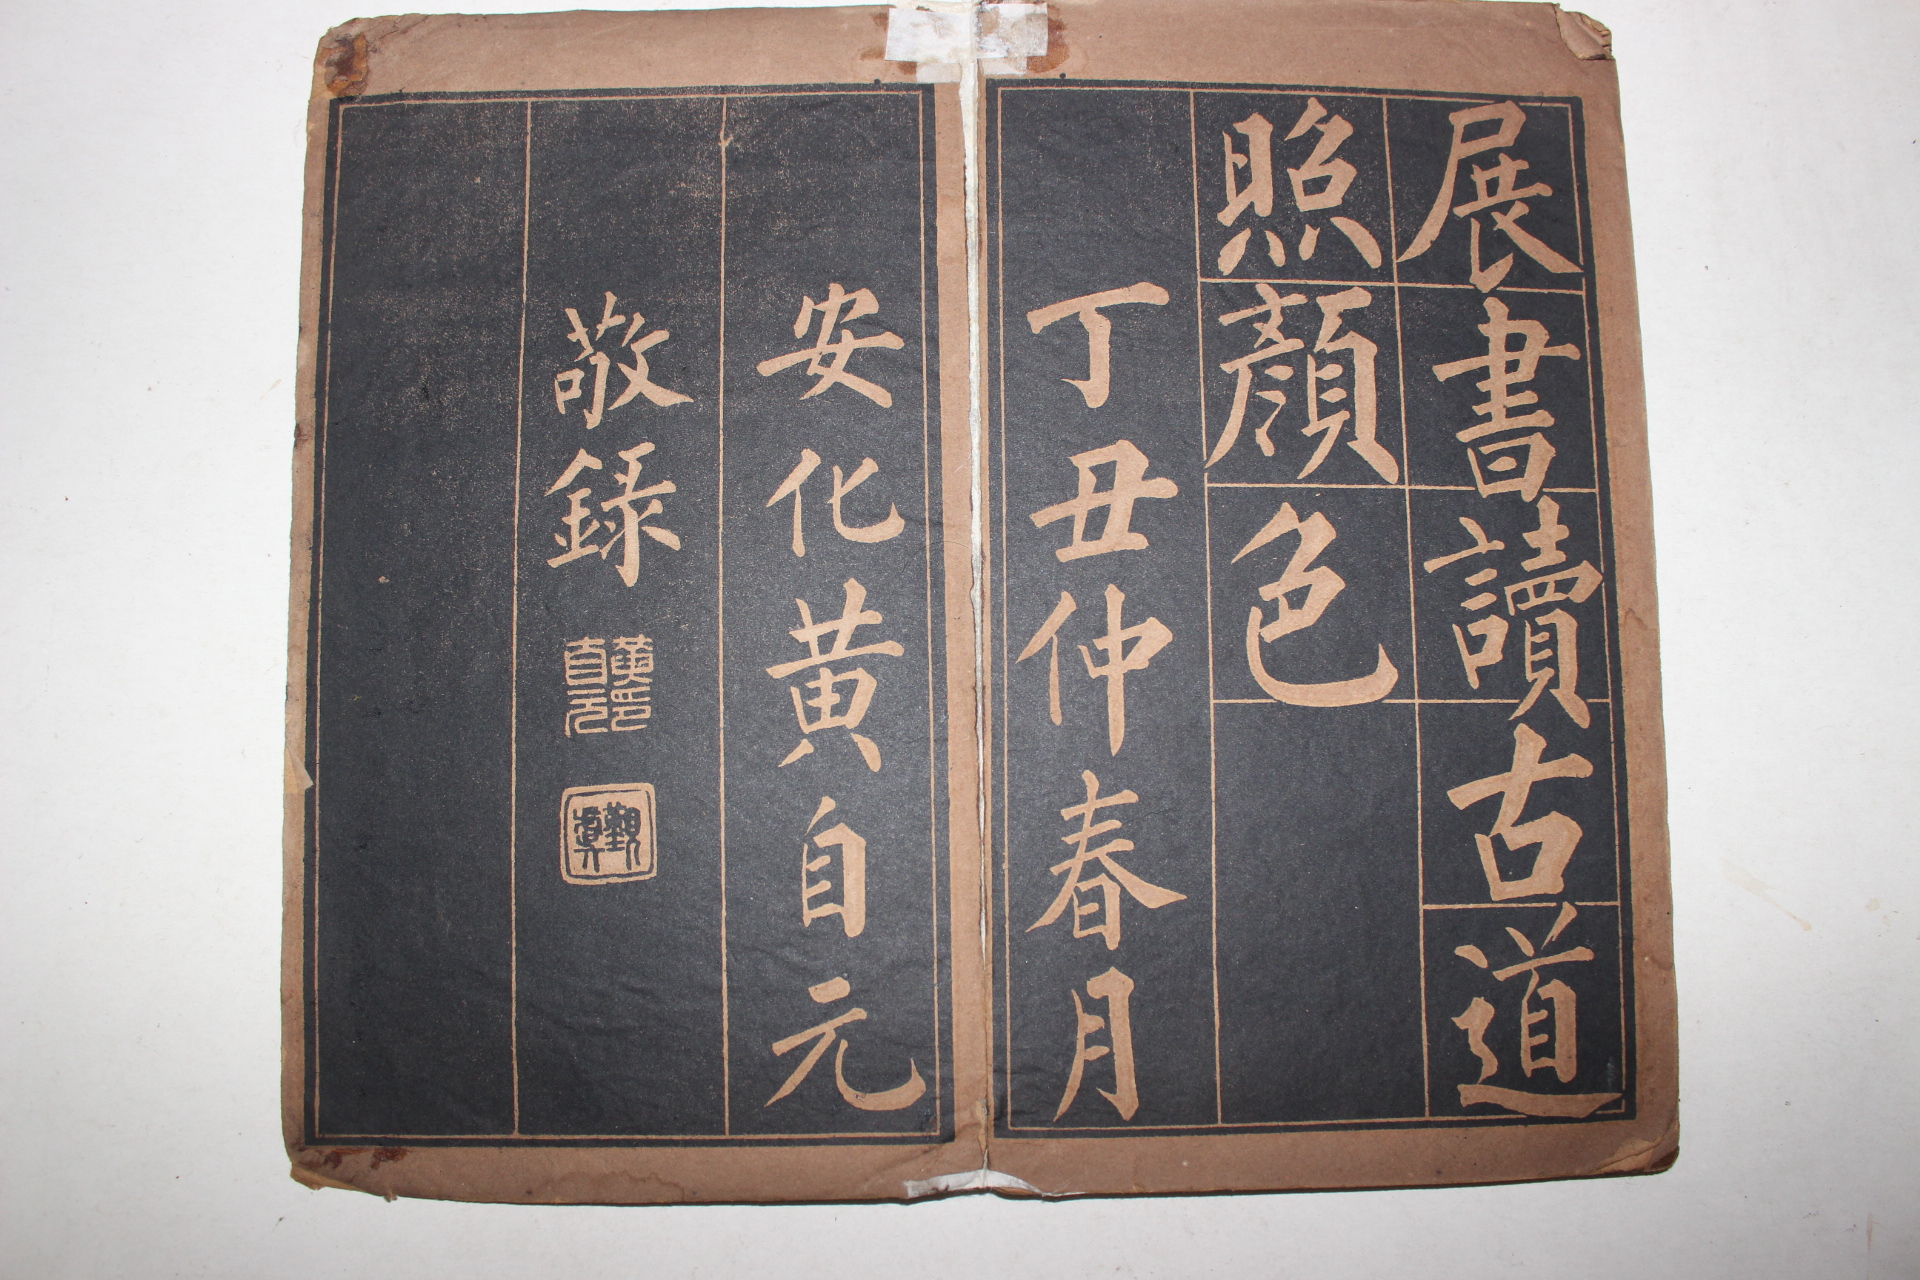 展書讀古道
照顏色
丁丑仲春月
安化黄自元
敬錄
黃自元印
觀眞